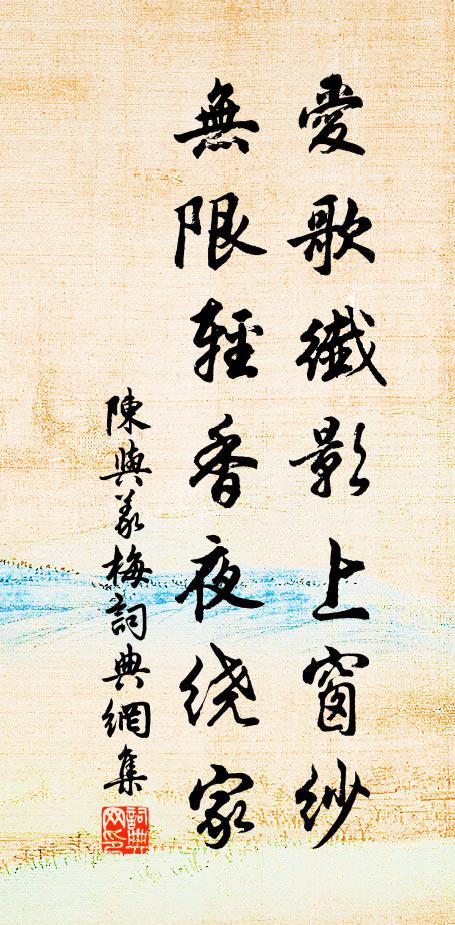 愛歌纖影上窗紗
無限輕香夜绕家
陳與義梅詞典網集
詞典網印